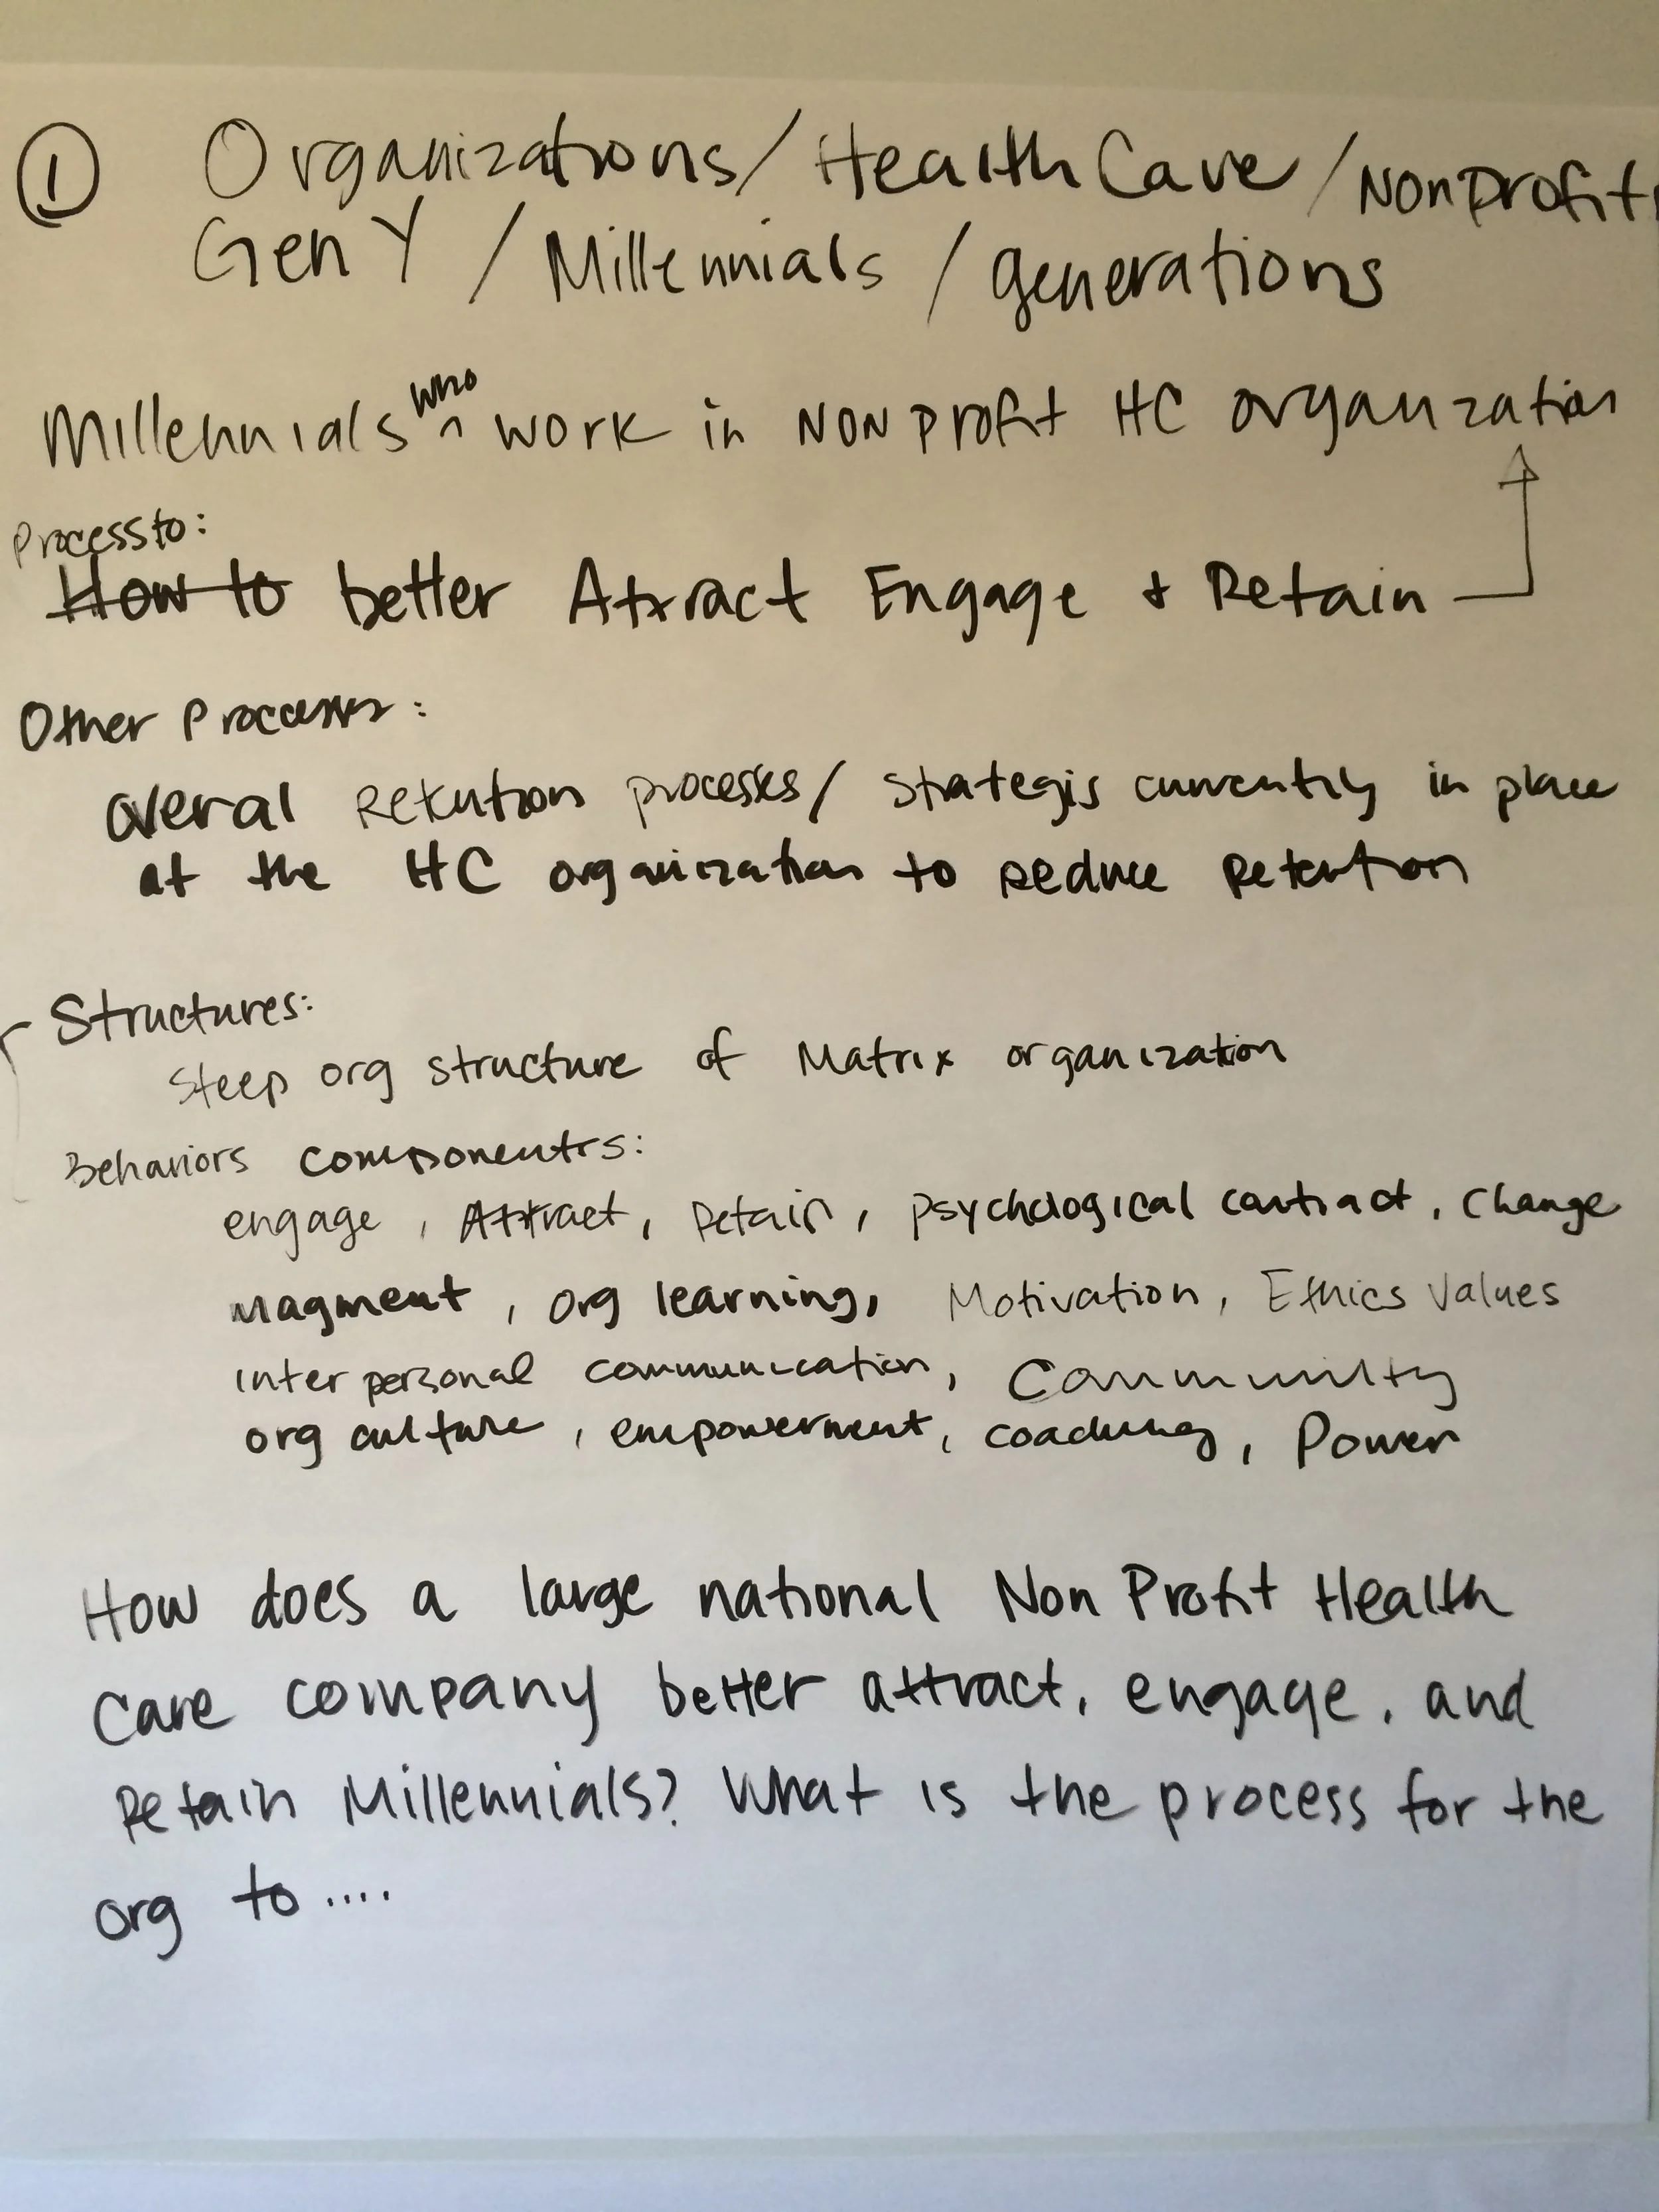 ① Organizations/ Health Care / Nonprofits
Gen Y / Millennials / generations
Millennials who ^ work in Non profit HC organization
Process to:
How to better Attract Engage + Retain
Other Processes:
Overal Retention processes/ Strategis currently in place
at the HC organization to Reduce Retention
Structures:
Steep org structure of Matrix organization
Behaviors componentrs:
engage, Attract, Retain, psychological contract, Change
Magment, Org learning, Motivation, Ethics Values
inter personal communication, Community
org culture, empowerment, coaching, Power
How does a large national Non Profit Health
Care company better attract, engage, and
Retain Millennials? What is the process for the
org to ....